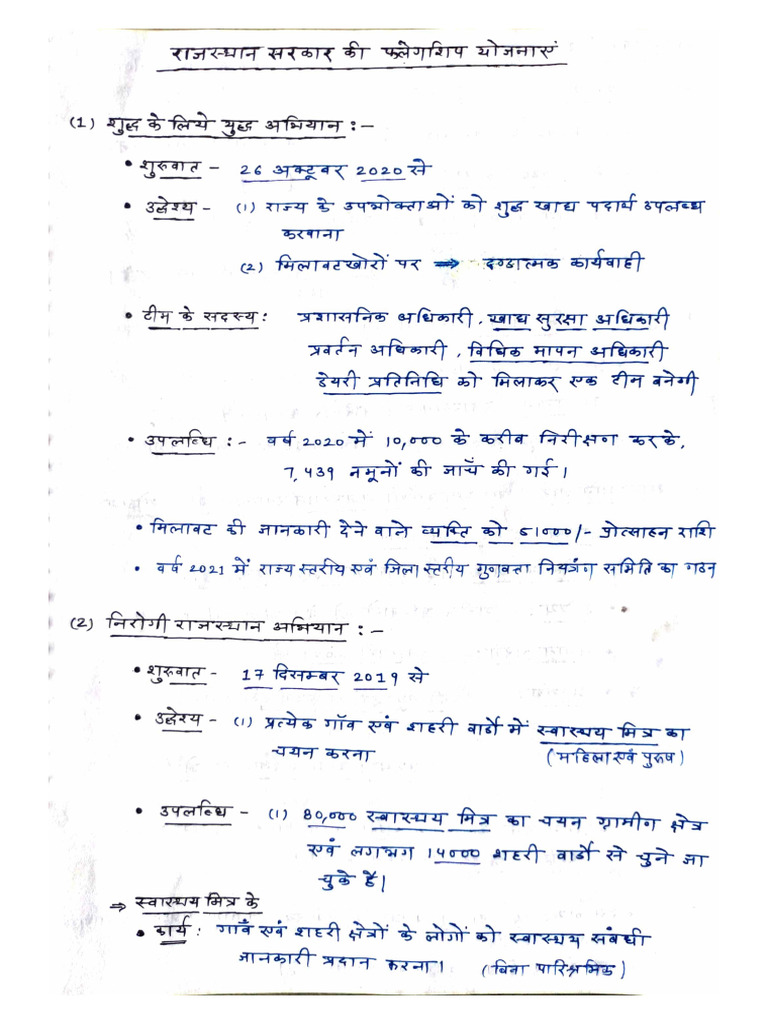 राजस्थान सरकार की फ्लेगशिप योजनाएं
(1) शुद्ध के लिये युद्ध अभियान :-
• शुरुवात - 26 अक्टूबर 2020 से
• उद्देश्य - (1) राज्य के उपभोक्ताओं को शुद्ध खाद्य पदार्थ उपलब्ध
करवाना
(2) मिलावटखोरों पर → दण्डात्मक कार्यवाही
• टीम के सदस्य : प्रशासनिक अधिकारी, खाद्य सुरक्षा अधिकारी
प्रवर्तन अधिकारी, विधिक मापन अधिकारी
डेयरी प्रतिनिधि को मिलाकर एक टीम बनेगी
• उपलब्धि :- वर्ष 2020 में 10,000 के करीब निरीक्षण करके,
7,439 नमूनों की जाचँ की गई।
• मिलावट की जानकारी देने वाले व्यक्ति को 51000/- प्रोत्साहन राशि
• वर्ष 2021 में राज्य स्तरीय एवं जिला स्तरीय गुणवत्ता नियत्रंण समिति का गठन
(2) निरोगी राजस्थान अभियान :-
• शुरुवात - 17 दिसम्बर 2019 से
• उद्देश्य - (1) प्रत्येक गाँव एवं शहरी वार्डों में स्वास्थय मित्र का
चयन करना (महिला एवं पुरुष)
• उपलब्धि - (1) 80,000 स्वास्थय मित्र का चयन ग्रामीण क्षेत्र
एवं लगभग 14000 शहरी वार्डों से चुने जा
चुके हैं।
⇒ स्वास्थय मित्र के
• कार्य : गाँव एवं शहरी क्षेत्रों के लोगों को स्वास्थय संबंधी
जानकारी प्रदान करना। (बिना पारिश्रमिक)